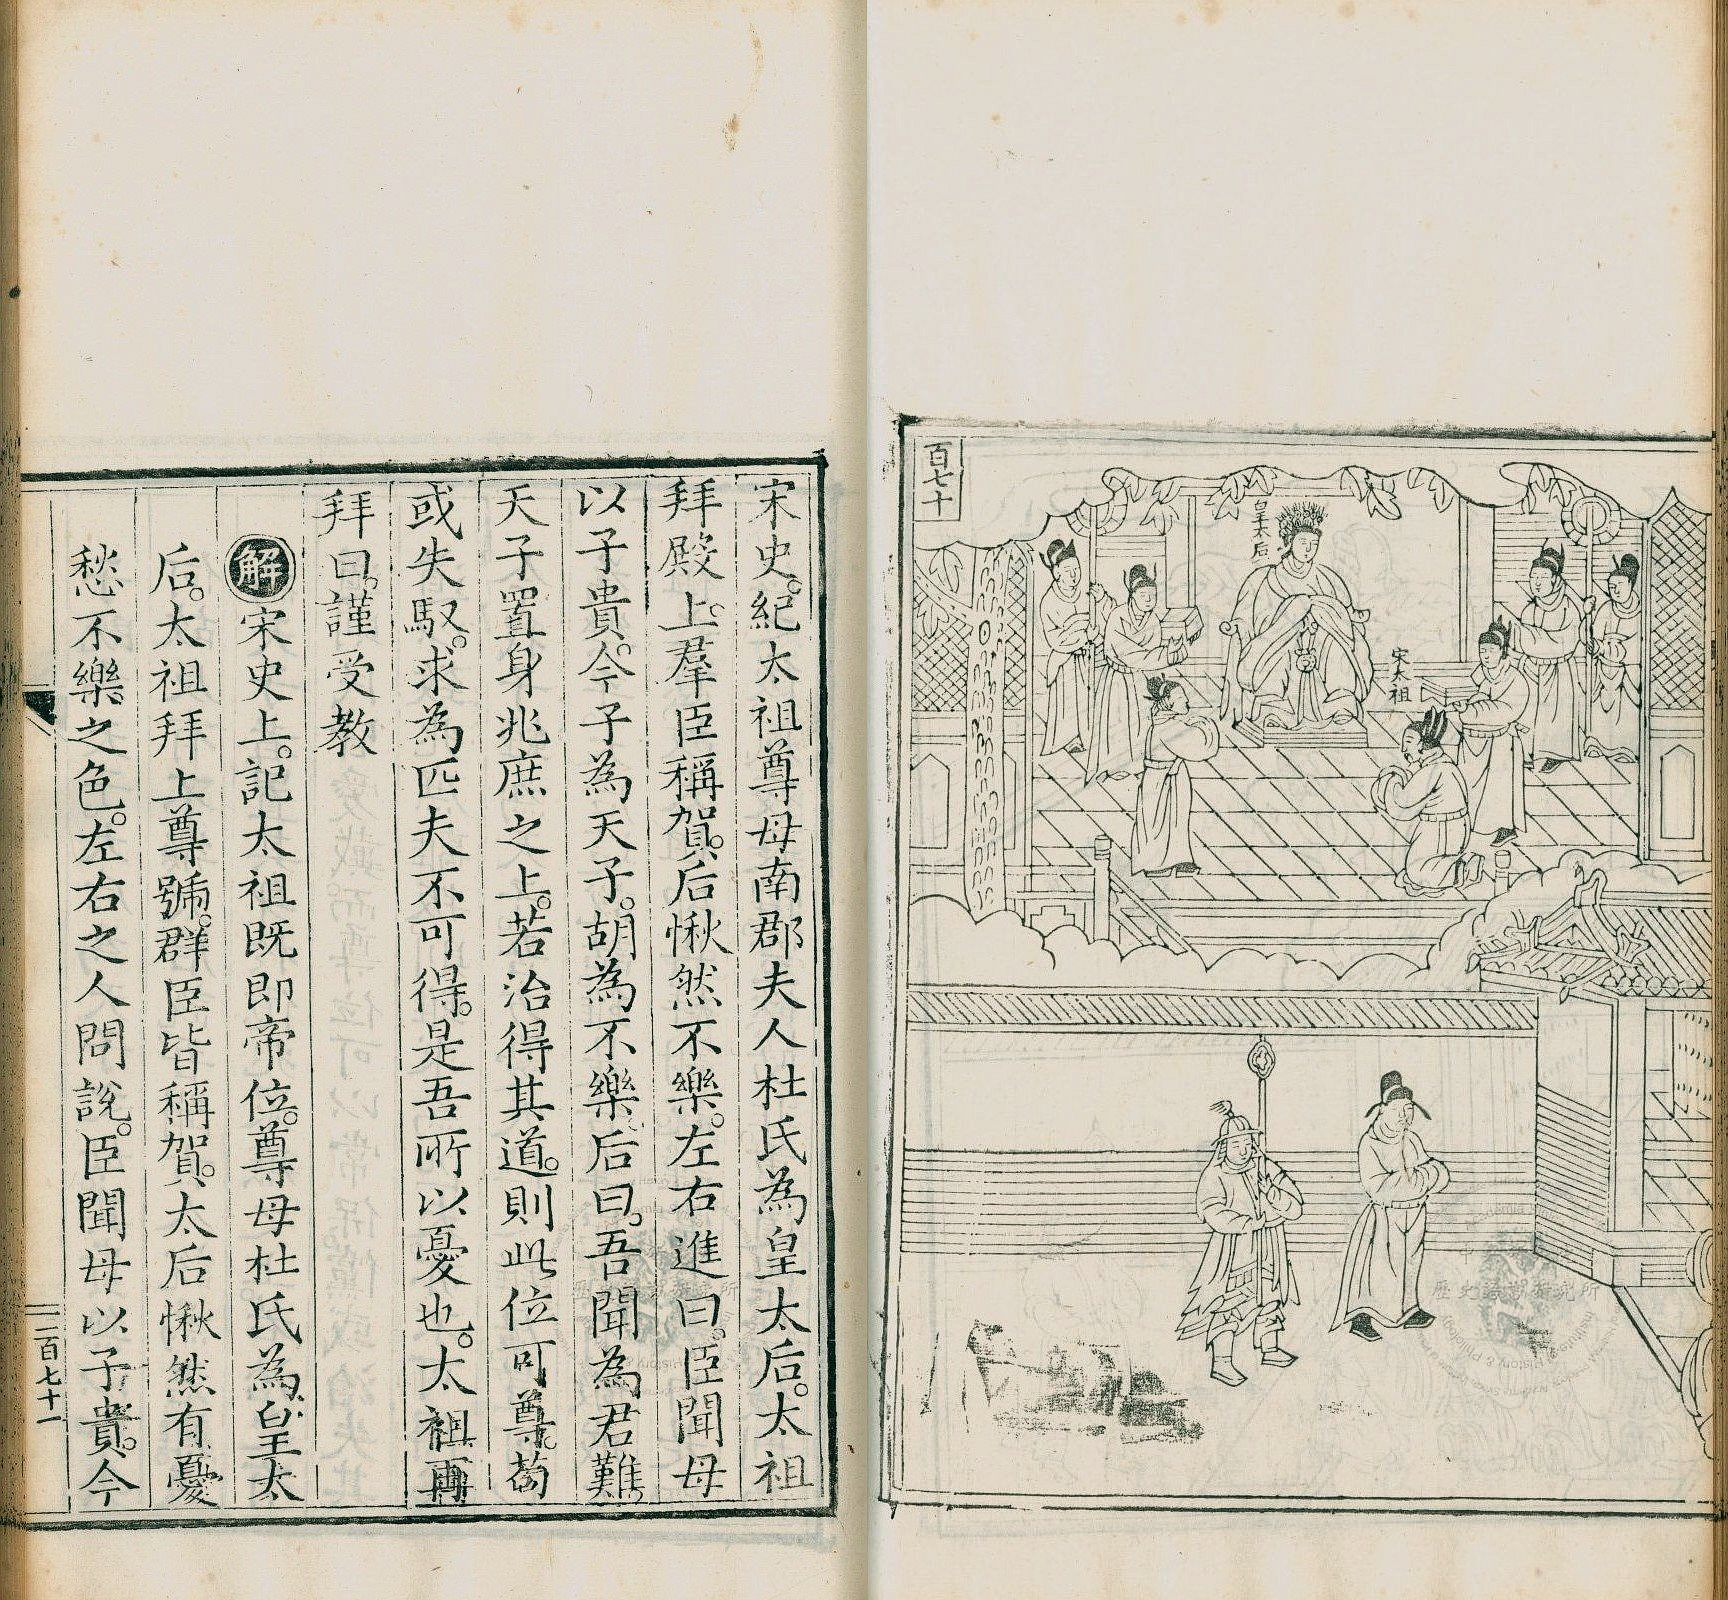 百七十
皇太后
宋太祖
宋史。紀太祖尊母南郡夫人杜氏為皇太后。太祖
拜殿上。羣臣稱賀。后愀然不樂。左右進曰。臣聞母
以子貴。今子為天子。胡為不樂。后曰。吾聞為君難。
天子置身兆庶之上。若治得其道。則此位可尊。苟
或失馭。求為匹夫不可得。是吾所以憂也。太祖再
拜曰。謹受教
解宋史上。記太祖既即帝位。尊母杜氏為皇太
后。太祖拜上尊號。群臣皆稱賀。太后愀然有憂
愁不樂之色。左右之人問說。臣聞母以子貴。今
二百七十一
歷史語言研究所